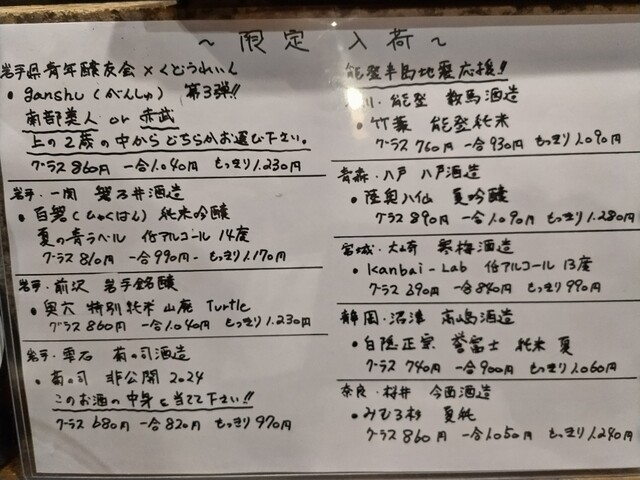 ～ 限定 入荷 ～
岩手県青年醸友会×くどうれいん
• ganshu (がんしゅ) 第3弾!!
南部美人 or 赤武
上の2蔵の中からどちらかお選び下さい。
グラス860円 一合1.040円 もっきり1.230円
岩手・一関 磐乃井酒造
• 白磐(びゃくばん) 純米吟醸
夏の青ラベル 低アルコール 14度
グラス810円 一合990円- もっきり1.170円
岩手・前沢 岩手銘醸
• 奥六 特別純米 山廃 Turtle
グラス860円 一合1.040円 もっきり1.230円
岩手・雫石 菊の司酒造
• 菊の司 非公開 2024
このお酒の中身を当てて下さい!!
グラス680円 一合820円 もっきり970円
能登半島地震応援!!
川・能登 数馬酒造
• 竹葉 能登純米
グラス760円 一合930円 もっきり1.090円
青森・八戸 八戸酒造
• 陸奥八仙 夏吟醸
グラス890円 一合1.090円 もっきり1.280円
宮城・大崎 寒梅酒造
• Kanbai-Lab 低アルコール 13度
グラス690円 一合840円 もっきり990円
静岡・沼津 高嶋酒造
• 白隠正宗 誉富士 純米 夏
グラス740円 一合900円 もっきり1.060円
奈良・桜井 今西酒造
• みむろ杉 夏純
グラス860円 一合1.050円 もっきり1.240円